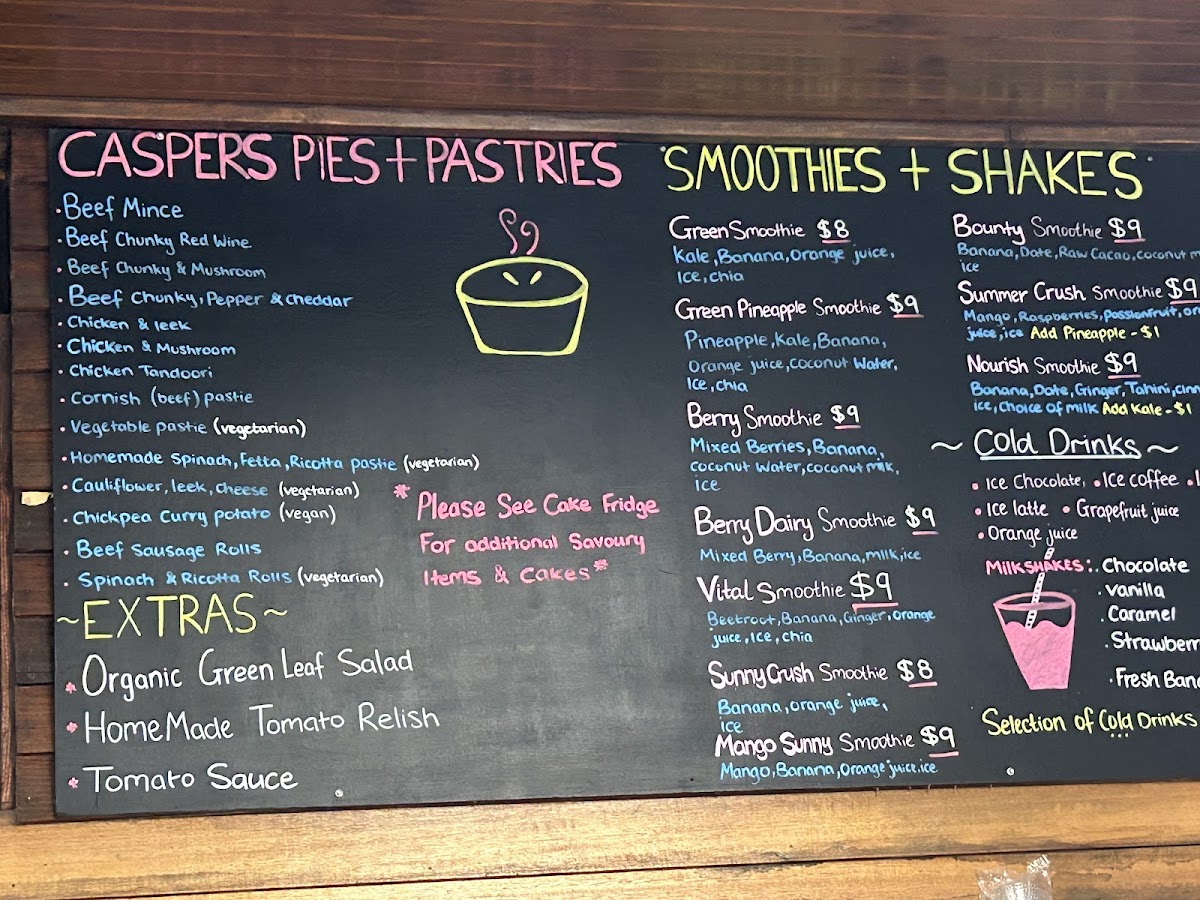 CASPERS PIES + PASTRIES
• Beef Mince
• Beef Chunky Red Wine
• Beef Chunky & Mushroom
• Beef Chunky, Pepper & cheddar
• Chicken & leek
• Chicken & Mushroom
• Chicken Tandoori
• Cornish (beef) pastie
• Vegetable pastie (vegetarian)
• Homemade Spinach, Fetta, Ricotta pastie (vegetarian)
• Cauliflower, leek, cheese (vegetarian)
• Chickpea Curry potato (vegan)
• Beef Sausage Rolls
• Spinach & Ricotta Rolls (vegetarian)
* Please See Cake Fridge
For additional Savoury
Items & Cakes *
~EXTRAS~
* Organic Green Leaf Salad
* HomeMade Tomato Relish
* Tomato Sauce
SMOOTHIES + SHAKES
Green Smoothie $8
Kale, Banana, Orange juice,
Ice, Chia
Green Pineapple Smoothie $9
Pineapple, Kale, Banana,
Orange juice, Coconut Water,
Ice, Chia
Berry Smoothie $9
Mixed Berries, Banana,
Coconut Water, coconut milk,
ice
Berry Dairy Smoothie $9
Mixed Berry, Banana, milk, ice
Vital Smoothie $9
Beetroot, Banana, Ginger, Orange
juice, Ice, chia
Sunny Crush Smoothie $8
Banana, orange juice,
ice
Mango Sunny Smoothie $9
Mango, Banana, Orange juice, ice
Bounty Smoothie $9
Banana, Date, Raw Cacao, coconut
ice
Summer Crush Smoothie $9
Mango, Raspberries, Passionfruit,
juice, ice Add Pineapple - $1
Nourish Smoothie $9
Banana, Date, Ginger, Tahini,
ice, Choice of milk Add Kale - $1
~ Cold Drinks ~
• Ice Chocolate, • Ice coffee •
• Ice latte • Grapefruit juice
• Orange juice
MILKSHAKES: • Chocolate
• vanilla
• Caramel
• Strawberr
• Fresh Bana
Selection of Cold Drinks